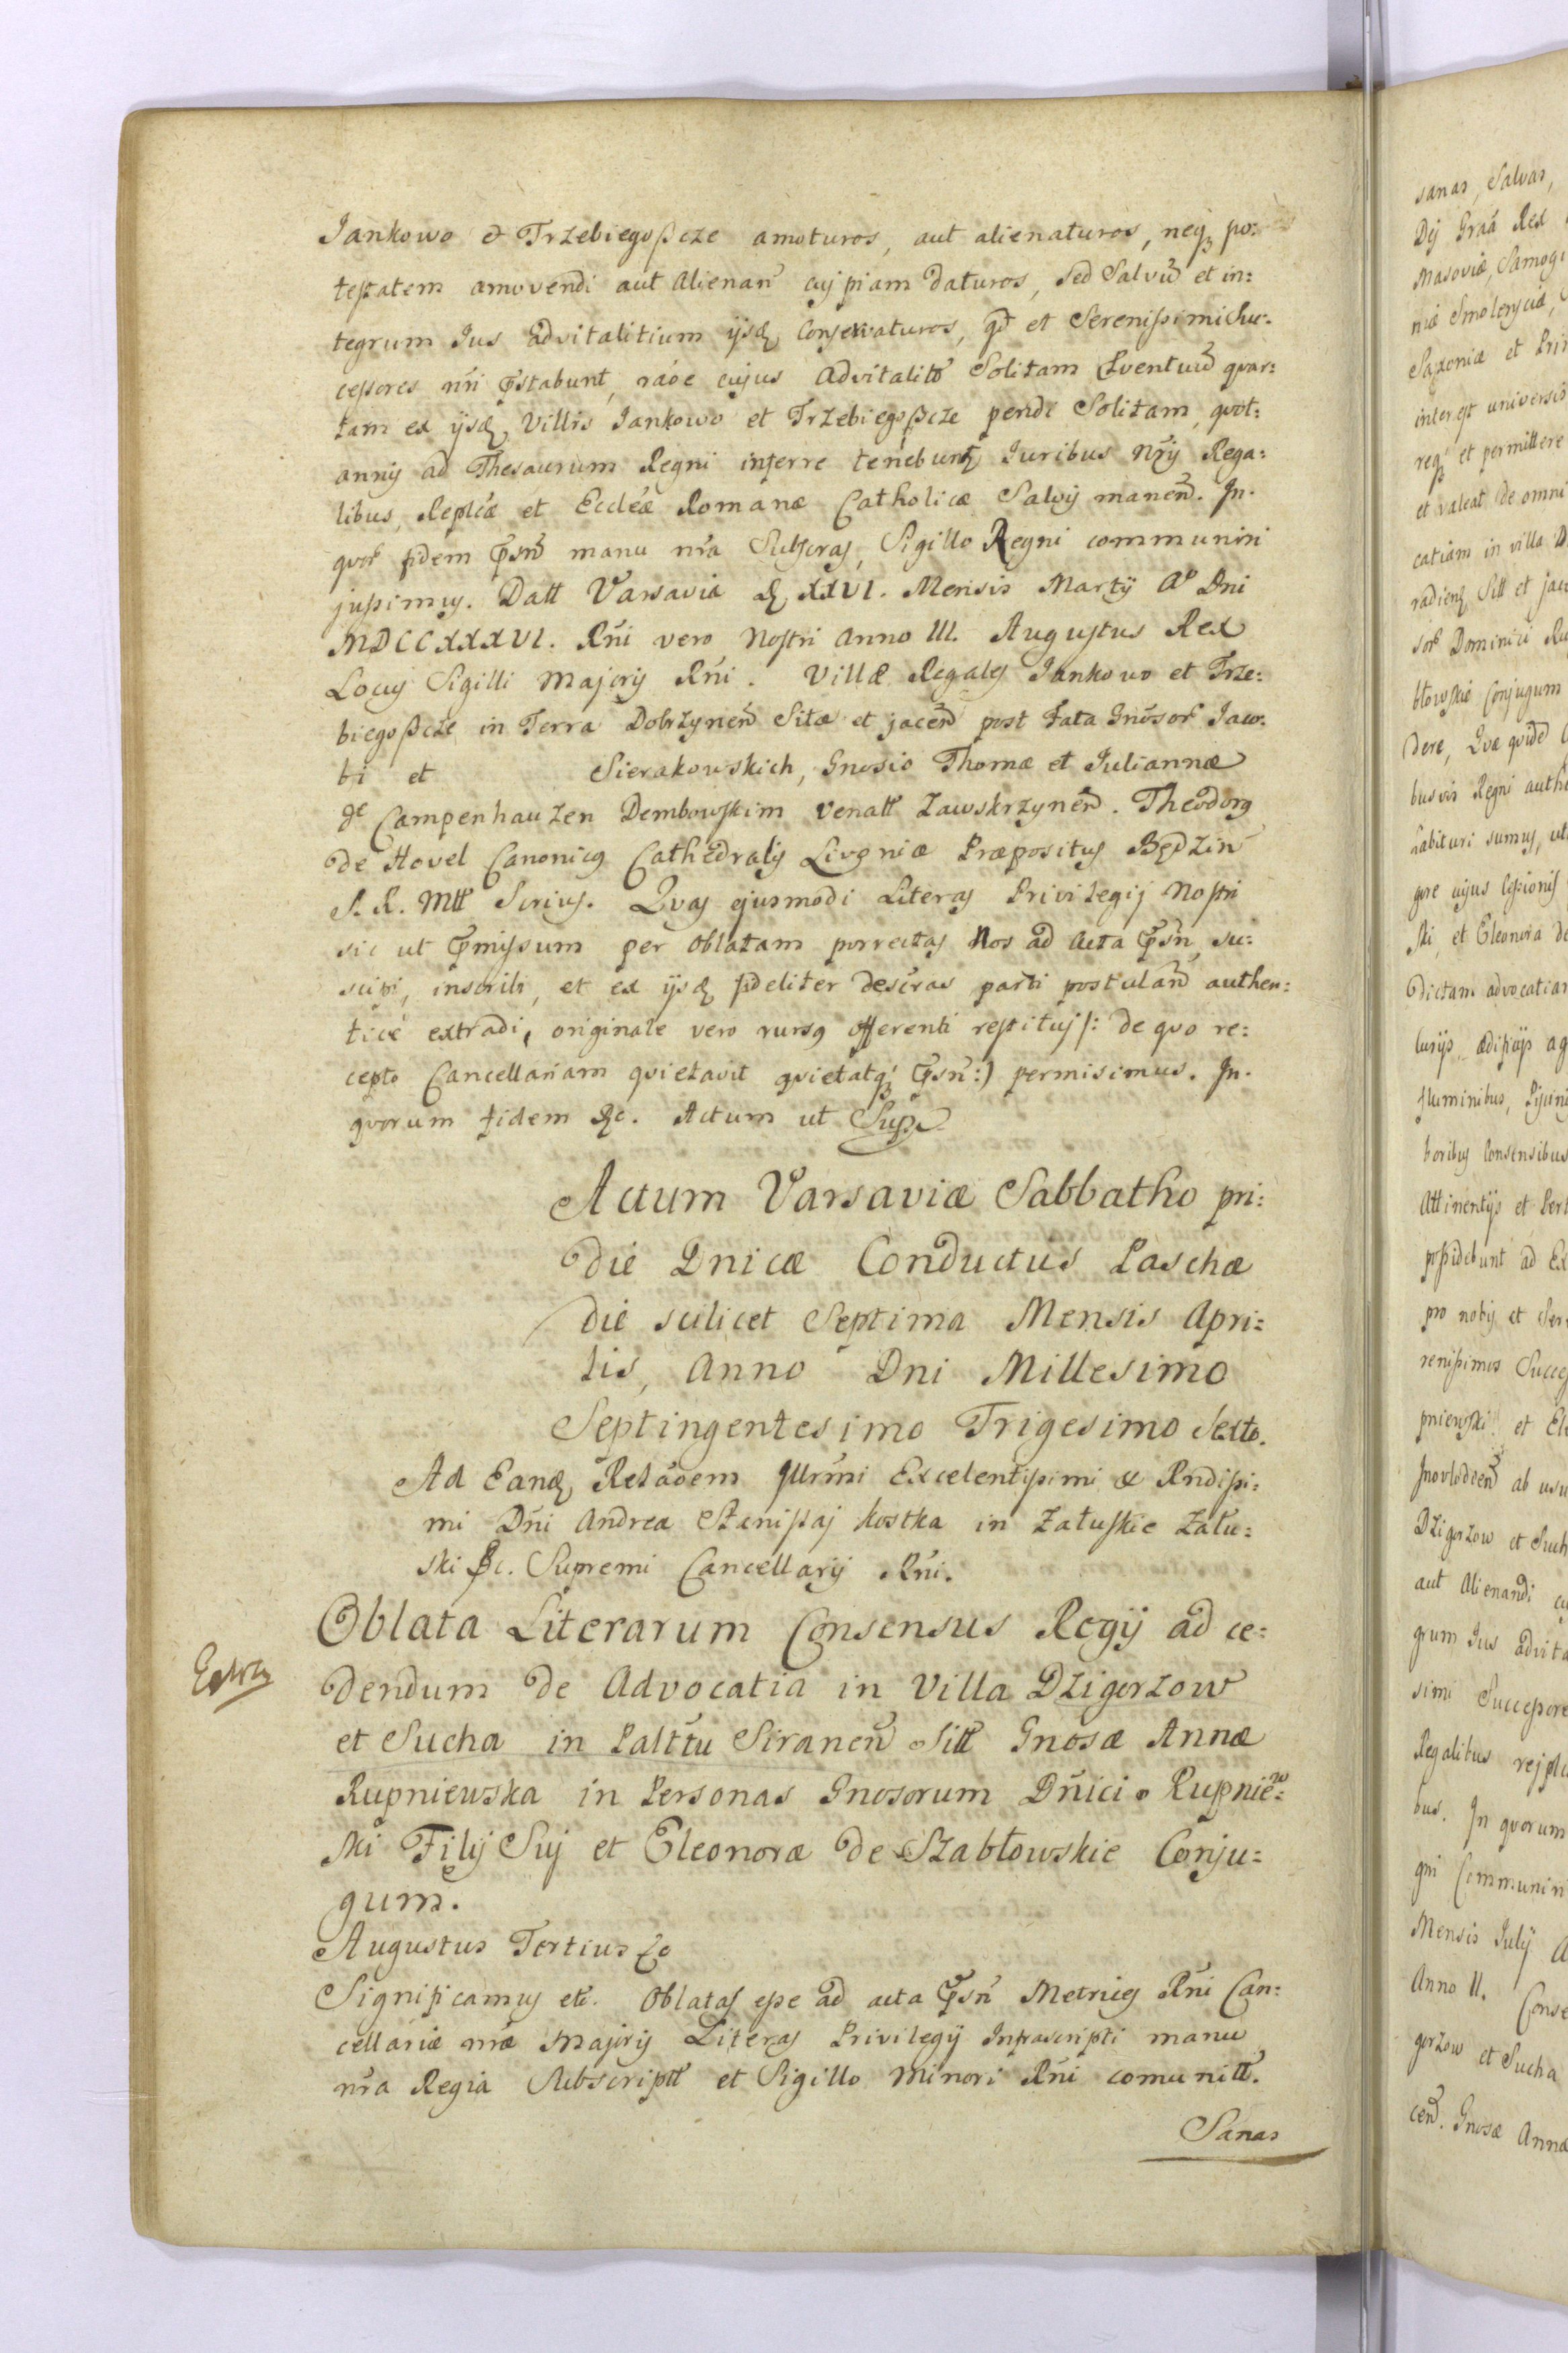 Jankowo et Trzebiegoßcze amoturos, aut alienaturos, neq₃ po:
testatem amovendi aut alienañ cujpiam daturos, sed salvũ et in:
tegrum Jus advitalitium ijsd̃ conservaturos, qd̃ et Serenissimi Suc:
cessores nr̃i p̃stabunt, rãoe cujus advitalit̃ solitam proventuũ quar:
tam ex ijsd̃ Villis Jankowo et Trzebiegoßcze pendi solitam, quot:
annis ad Thesaurum Regni inferre tenebunt̃ Juribus nr̃is Rega:
libus, Reiplcæ et Ecclẽæ Romanæ Catholicæ Salvis maneñ. In
quor̃ fidem p̃sñ manu nr̃a subscras, Sigillo Regni communiri
jussimus. Datt Varsaviæ d̃ XXVI. Mensis Martij Aᵒ Dni
MDCCXXXVI. Rñi vero Nostri Anno III. Augustus Rex
Locus Sigilli Majoris Rñi. Villæ Regales Jankowo et Trze:
biegoßcze in Terra Dobrzyneñ Sitæ et jaceñ post fata Gnõsor̃ Jaco:
bi et Sierakowskich, Gnosis Thomæ et Juliannæ
de Campenhauzen Dembowskim Venatt Zawskrzyneñ. Theodorus
de Hovel Canonicus Cathedralis Livoniæ Præpositus Będziñ
S. R. Mtt Scrius. Quas ejusmodi Literas Privilegij Nostri
sic ut p̃missum per oblatam porrectas Nos ad acta p̃sñ su:
scipi, inscribi, et ex ijsd̃ fideliter descras parti postulañ authen:
tice extradi, originale vero rursus offerenti restitui /: de quo re:
cepto Cancellariam quietavit quietatq₃ p̃sñ :) permisimus. In
quorum fidem &c. Actum ut Supra
Actum Varsaviæ Sabbatho pri:
die Dnicæ Conductus Paschæ
die scilicet Septima Mensis Apri:
lis, Anno Dni Millesimo
Septingentesimo Trigesimo Sexto.
Ad Eand̃ Relãoem Illrm̃i Excelentissimi & Rndissi:
mi Dñi Andreæ Stanislaj Kostka in Załuskie Zału:
ski &c. Supremi Cancellarij Rñi.
Oblata Literarum Consensus Regij ad ce:
dendum de Advocatia in Villa Dzigorzow
et Sucha in Palttu Siraneñ Sitt Gnosæ Annæ
Rupniewska in Personas Gnosorum Dñici Rupniew:
ski Filij Sui et Eleonoræ de Szabłowskie Conju:
gum.
Augustus Tertius &c
Significamus etc. Oblatas esse ad acta p̃sñ Metrices Rñi Can:
cellariæ nr̃æ Majoris Literas Privilegij Infrascripti manu
nr̃a Regia Subscriptt et Sigillo Minori Rñi comunitt.
Sanas
sanas, Salvas,
Dej Graã Rex
Masoviæ, Samogi
niæ Smolensciæ,
Saxoniæ et Prin
interest universis
et permittere
et valeat de omni
catiam in villa D
radieñ Sitt et jac
sor̃ Dominici Ru
błowskie Conjugum
dere, Quæ quidẽ
busvis Regni auth
habituri sumus, ut
pore cujus cessionis
ski et Eleonora de
dictam advocatiam
lurijs, ædificijs ag
fluminibus, Piscin
boribus Consensibus
Attinentijs et Pert
possidebunt ad Ex
pro nobis et Ser
renissimos Succes
pniewski et Ele
Inovlodceñ ab usu
Dzigorzow et Such
aut Alienandi cu
grum Jus advita
simi Successore
Regalibus reiplc
bus. In quorum
gni Communiri
Mensis Julij A
Anno II. Conse
gorzow et Sucha
ceñ. Gnosæ Annæ